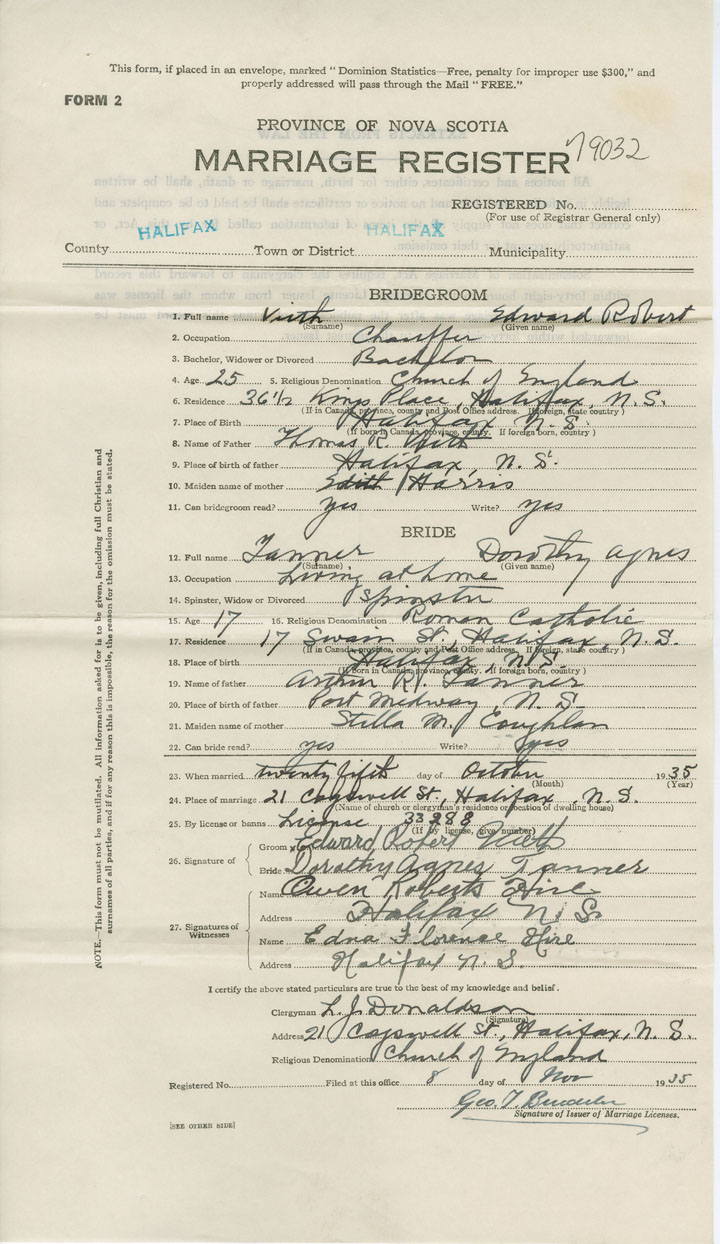 This form, if placed in an envelope, marked " Dominion Statistics—Free, penalty for improper use $300," and
properly addressed will pass through the Mail " FREE."
FORM 2
PROVINCE OF NOVA SCOTIA
MARRIAGE REGISTER 79032
REGISTERED No.
(For use of Registrar General only)
County HALIFAX Town or District HALIFAX Municipality
BRIDEGROOM
1. Full name Vieth Edward Robert
(Surname) (Given name)
2. Occupation Chauffer
3. Bachelor, Widower or Divorced Bachelor
4. Age 25 5. Religious Denomination Church of England
6. Residence 36½ Kings Place, Halifax, N.S.
(If in Canada, province, county and Post Office address. If foreign, state country )
7. Place of Birth Halifax, N.S.
(If born in Canada, province, county. If foreign born, country )
8. Name of Father Thomas R. Vieth
9. Place of birth of father Halifax, N.S.
10. Maiden name of mother Edith Harris
11. Can bridegroom read? yes Write? yes
BRIDE
12. Full name Tanner Dorothy Agnes
(Surname) (Given name)
13. Occupation Living at home
14. Spinster, Widow or Divorced Spinster
15. Age 17 16. Religious Denomination Roman Catholic
17. Residence 17 Swain St., Halifax, N.S.
(If in Canada, province, county and Post Office address. If foreign, state country )
18. Place of birth Halifax, N.S.
(If born in Canada, province, county. If foreign born, country )
19. Name of father Arthur R. Tanner
20. Place of birth of father Port Medway, N.S.
21. Maiden name of mother Stella M. Coughlan
22. Can bride read? yes Write? yes
23. When married twenty fifth day of October 1935
(Month) (Year)
24. Place of marriage 21 Cogswell St., Halifax, N.S.
(Name of church or clergyman's residence or location of dwelling house)
25. By license or banns License 33288
(If by license, give number)
26. Signature of
Groom x Edward Robert Vieth
Bride Dorothy Agnes Tanner
27. Signatures of Witnesses
Name Owen Roberts Hire
Address Halifax N.S.
Name Edna Florence Hire
Address Halifax N.S.
I certify the above stated particulars are true to the best of my knowledge and belief.
Clergyman L. J. Donaldson
(Signature)
Address 21 Cogswell St., Halifax, N.S.
Religious Denomination Church of England
Registered No. Filed at this office 8 day of Nov 1935
Geo. T.
Signature of Issuer of Marriage Licenses.
[SEE OTHER SIDE]
NOTE.—This form must not be mutilated. All information asked for is to be given, including full Christian and
surnames of all parties, and if for any reason this is impossible, the reason for the omission must be stated.